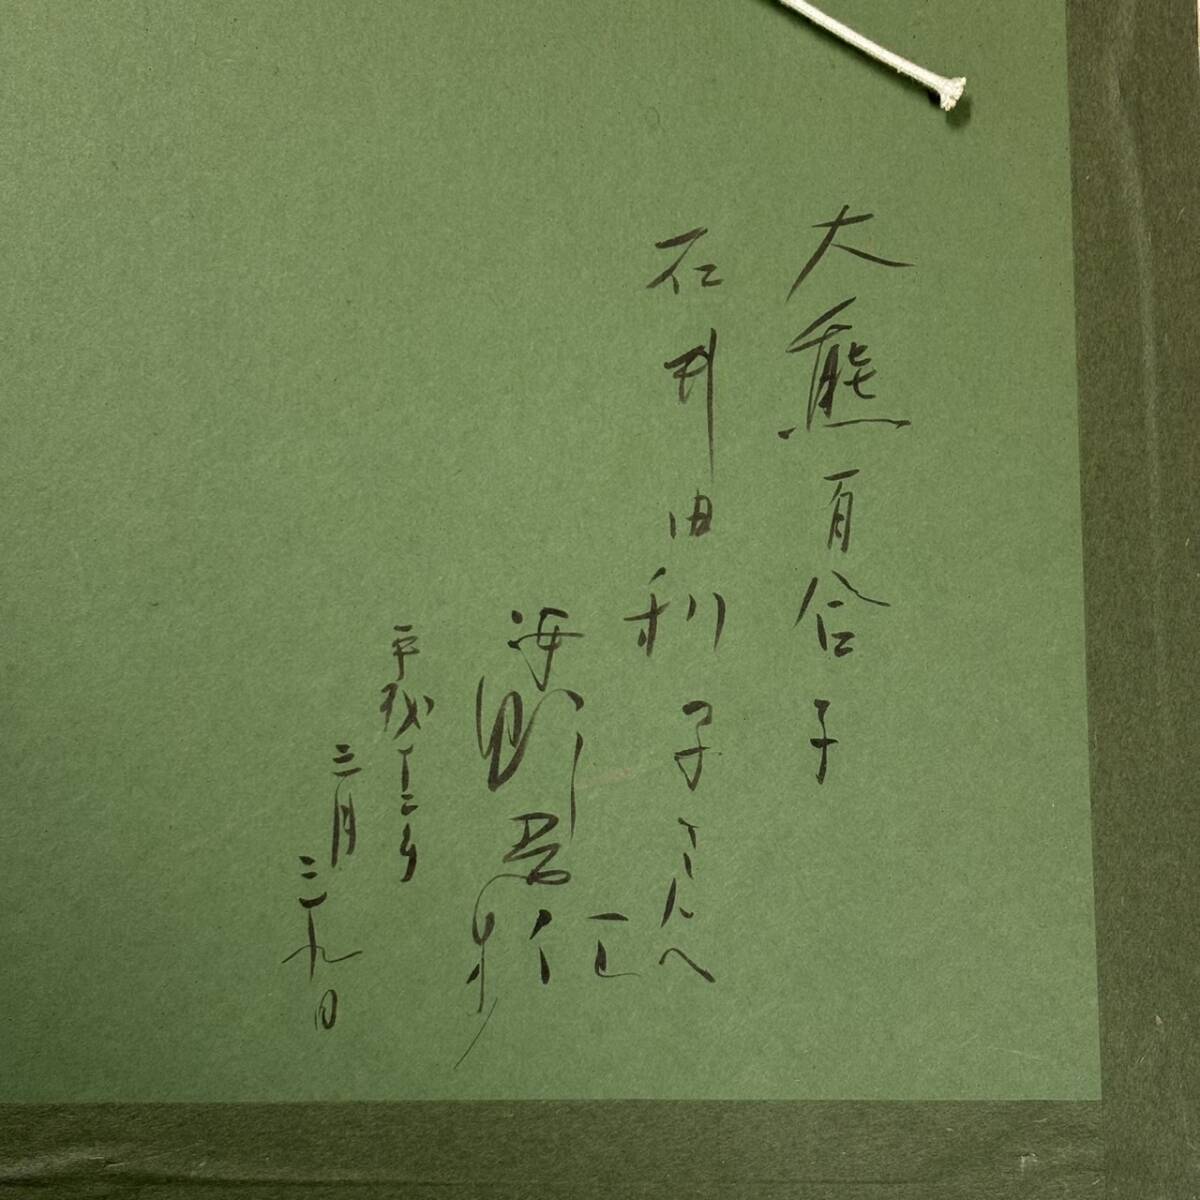 大熊百合子
石井由利子さんへ
海野
平成十二年
三月二十九日